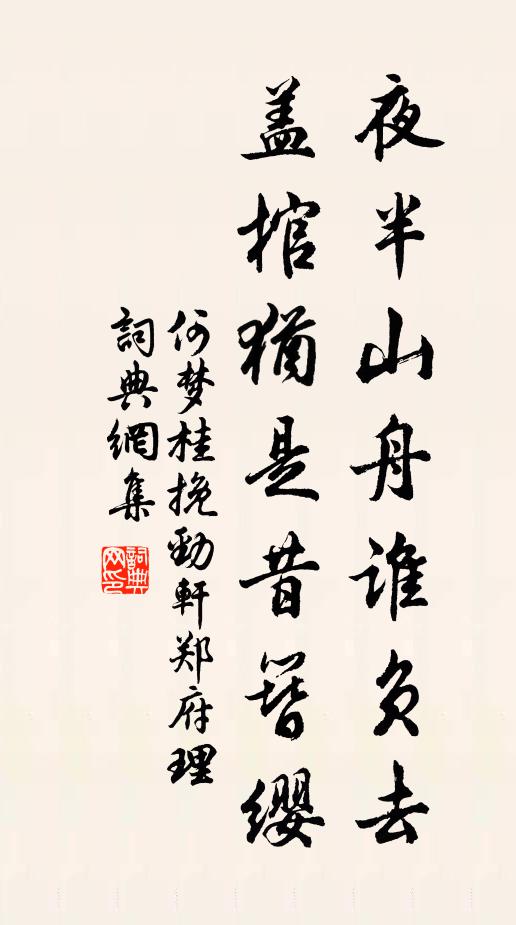 夜半山舟谁负去
盖棺犹是昔簪缨
何梦桂挽劲軒郑府理
詞典網集
詞典网印